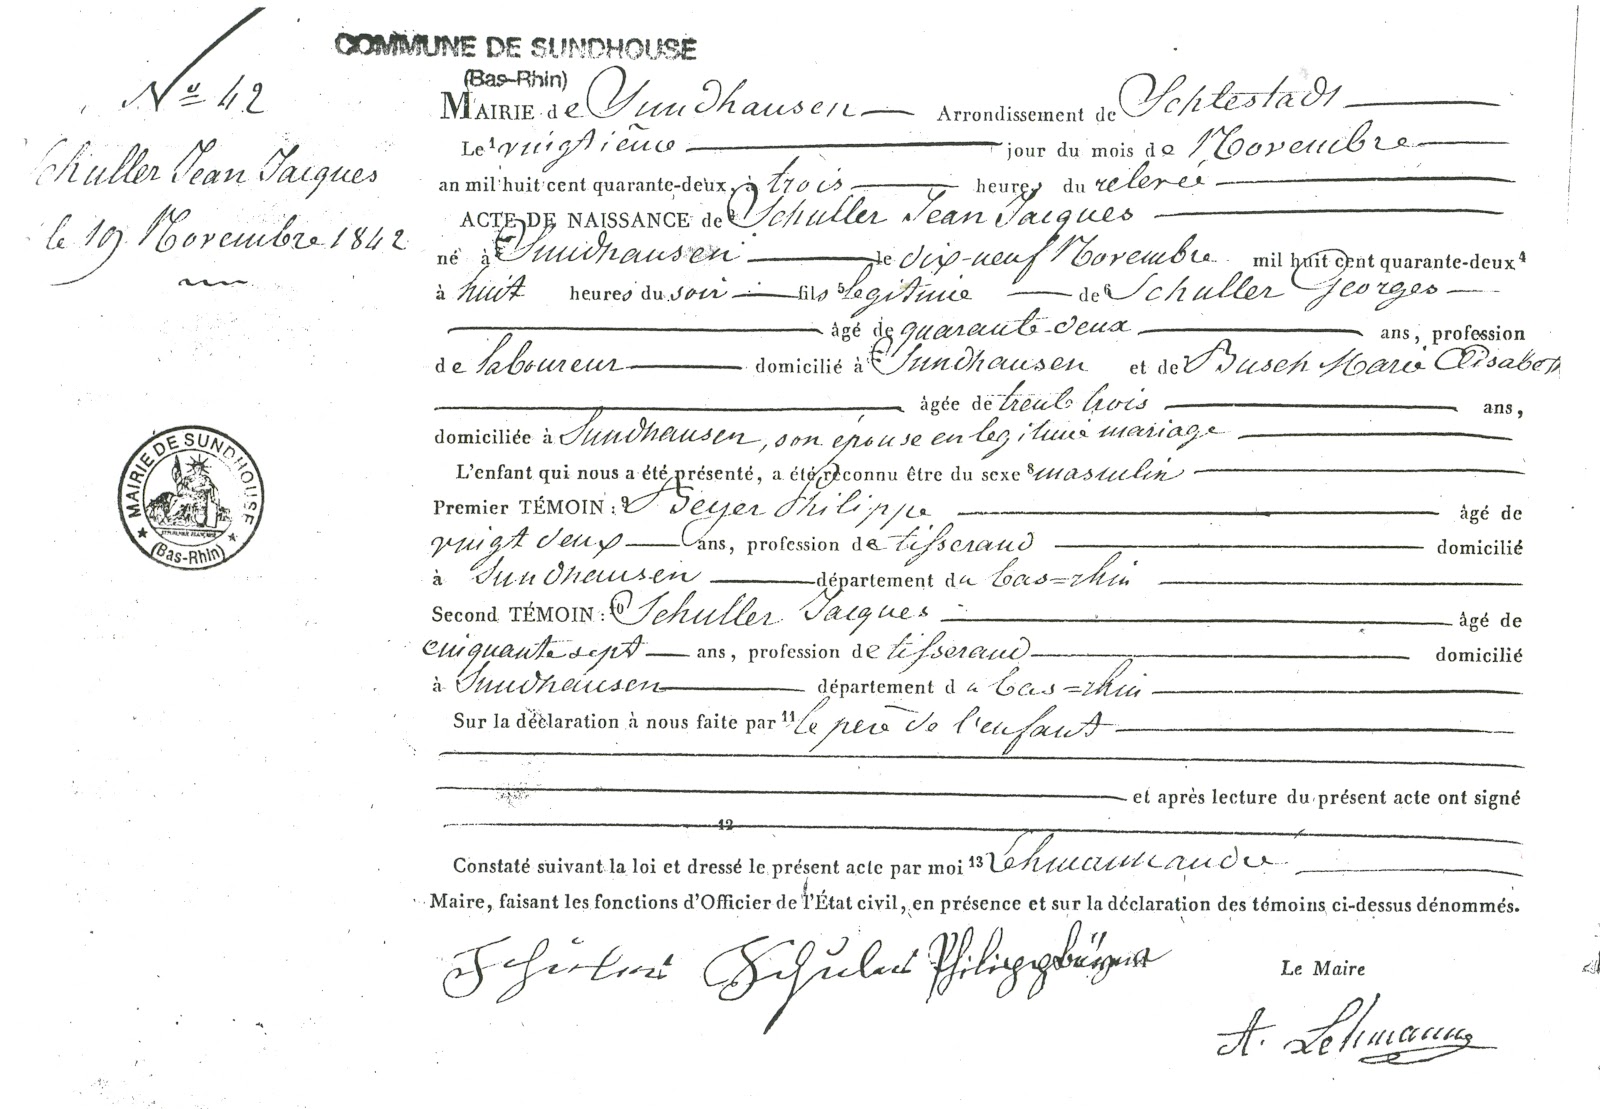 COMMUNE DE SUNDHOUSE
(Bas-Rhin)
No 42
Schuller Jean Jacques
le 19 Novembre 1842
MAIRIE de Sundhausen Arrondissement de Schlestadt
Le 1 vingtième jour du mois de Novembre
an mil huit cent quarante-deux, à trois heures du relevée
ACTE DE NAISSANCE de 2 Schuller Jean Jacques
né à 3 Sundhausen le dix-neuf Novembre mil huit cent quarante-deux 4
à huit heures du soir fils 5 legitime de 6 Schuller Georges
âgé de quarante-deux ans, profession
de laboureur domicilié à 7 Sundhausen et de Busch Marie Elisabeth
âgée de trente trois ans,
domiciliée à Sundhausen, son épouse en legitime mariage
L'enfant qui nous a été présenté, a été reconnu être du sexe 8 masculin
Premier TÉMOIN : 9 Beyer Philippe âgé de
vingt deux ans, profession de tisserand domicilié
à Sundhausen département du bas=rhin
Second TÉMOIN : 10 Schuller Jacques âgé de
cinquante sept ans, profession de tisserand domicilié
à Sundhausen département du bas=rhin
Sur la déclaration à nous faite par 11 le père de l'enfant
et après lecture du présent acte ont signé
12
Constaté suivant la loi et dressé le présent acte par moi 13 Lehmann andré
Maire, faisant les fonctions d'Officier de l'État civil, en présence et sur la déclaration des témoins ci-dessus dénommés.
Philipp
Le Maire
A. Lehmann
MAIRIE DE SUNDHOUSE
(Bas-Rhin)